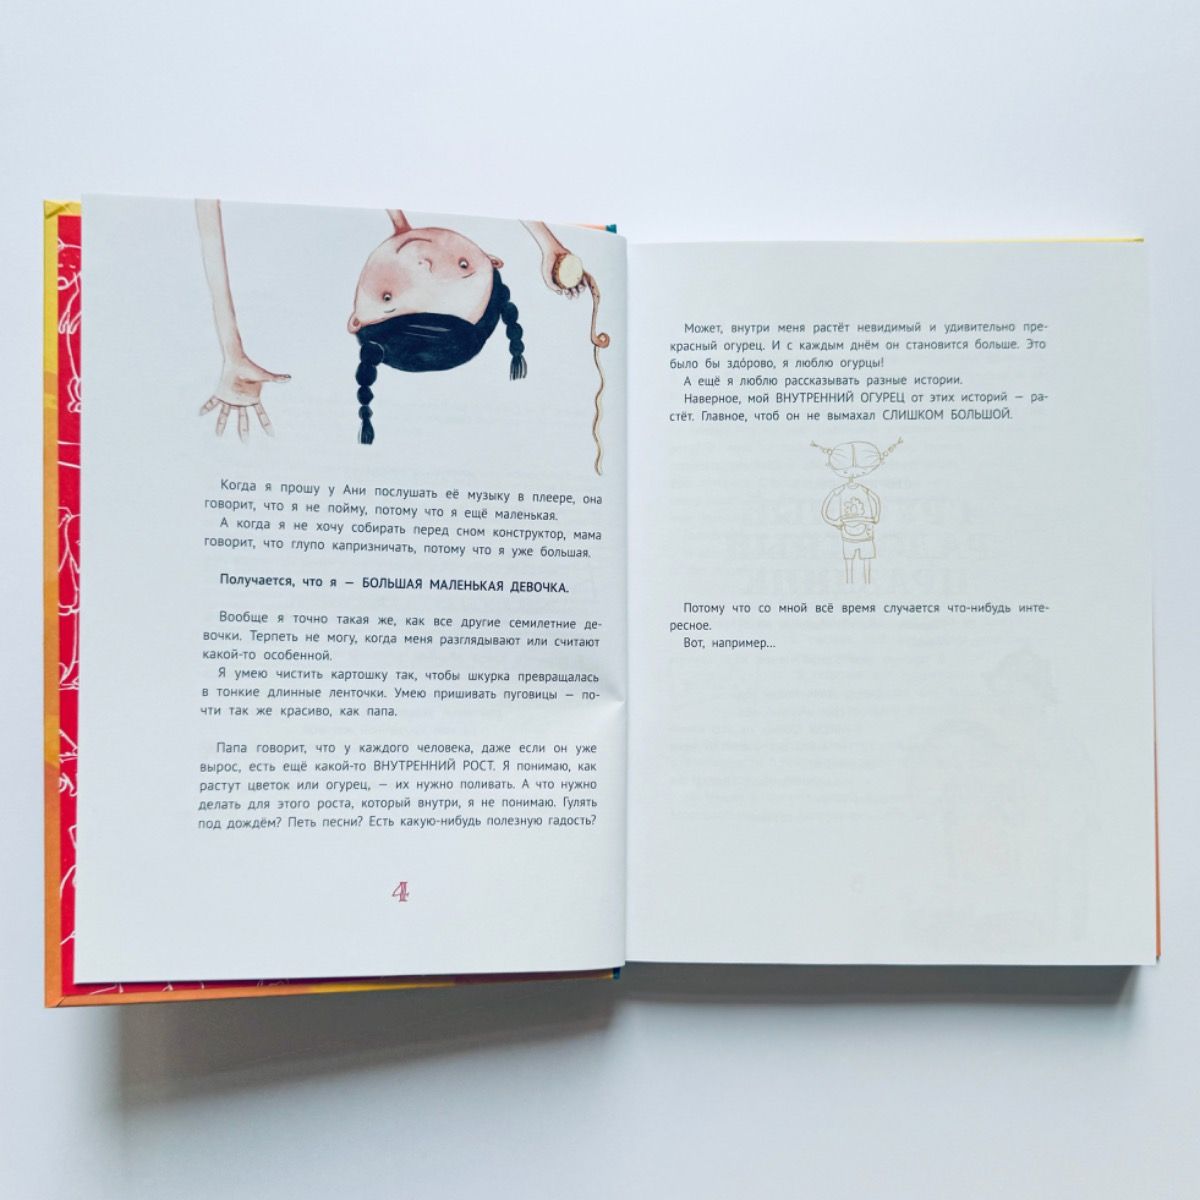 Когда я прошу у Ани послушать её музыку в плеере, она
говорит, что я не пойму, потому что я ещё маленькая.
А когда я не хочу собирать перед сном конструктор, мама
говорит, что глупо капризничать, потому что я уже большая.
Получается, что я — БОЛЬШАЯ МАЛЕНЬКАЯ ДЕВОЧКА.
Вообще я точно такая же, как все другие семилетние де-
вочки. Терпеть не могу, когда меня разглядывают или считают
какой-то особенной.
Я умею чистить картошку так, чтобы шкурка превращалась
в тонкие длинные ленточки. Умею пришивать пуговицы — по-
чти так же красиво, как папа.
Папа говорит, что у каждого человека, даже если он уже
вырос, есть ещё какой-то ВНУТРЕННИЙ РОСТ. Я понимаю, как
растут цветок или огурец, — их нужно поливать. А что нужно
делать для этого роста, который внутри, я не понимаю. Гулять
под дождём? Петь песни? Есть какую-нибудь полезную гадость?
4
Может, внутри меня растёт невидимый и удивительно пре-
красный огурец. И с каждым днём он становится больше. Это
было бы здо́рово, я люблю огурцы!
А ещё я люблю рассказывать разные истории.
Наверное, мой ВНУТРЕННИЙ ОГУРЕЦ от этих историй — ра-
стёт. Главное, чтоб он не вымахал СЛИШКОМ БОЛЬШОЙ.
Потому что со мной всё время случается что-нибудь инте-
ресное.
Вот, например...